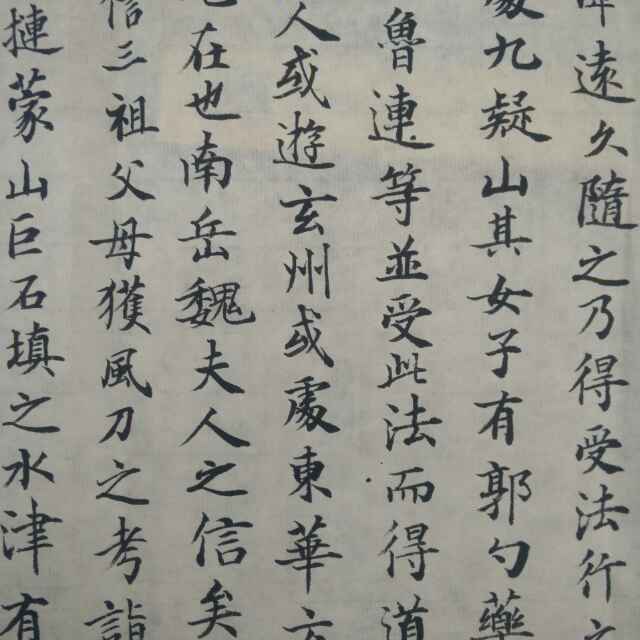 遠久隨之乃得受法行
九疑山其女子有郭勺藥
魯連等並受此法而得道
人或遊玄州或處東華方
在也南岳魏夫人之信矣
信三祖父母獲風刀之考詣
摙蒙山巨石填之水津有